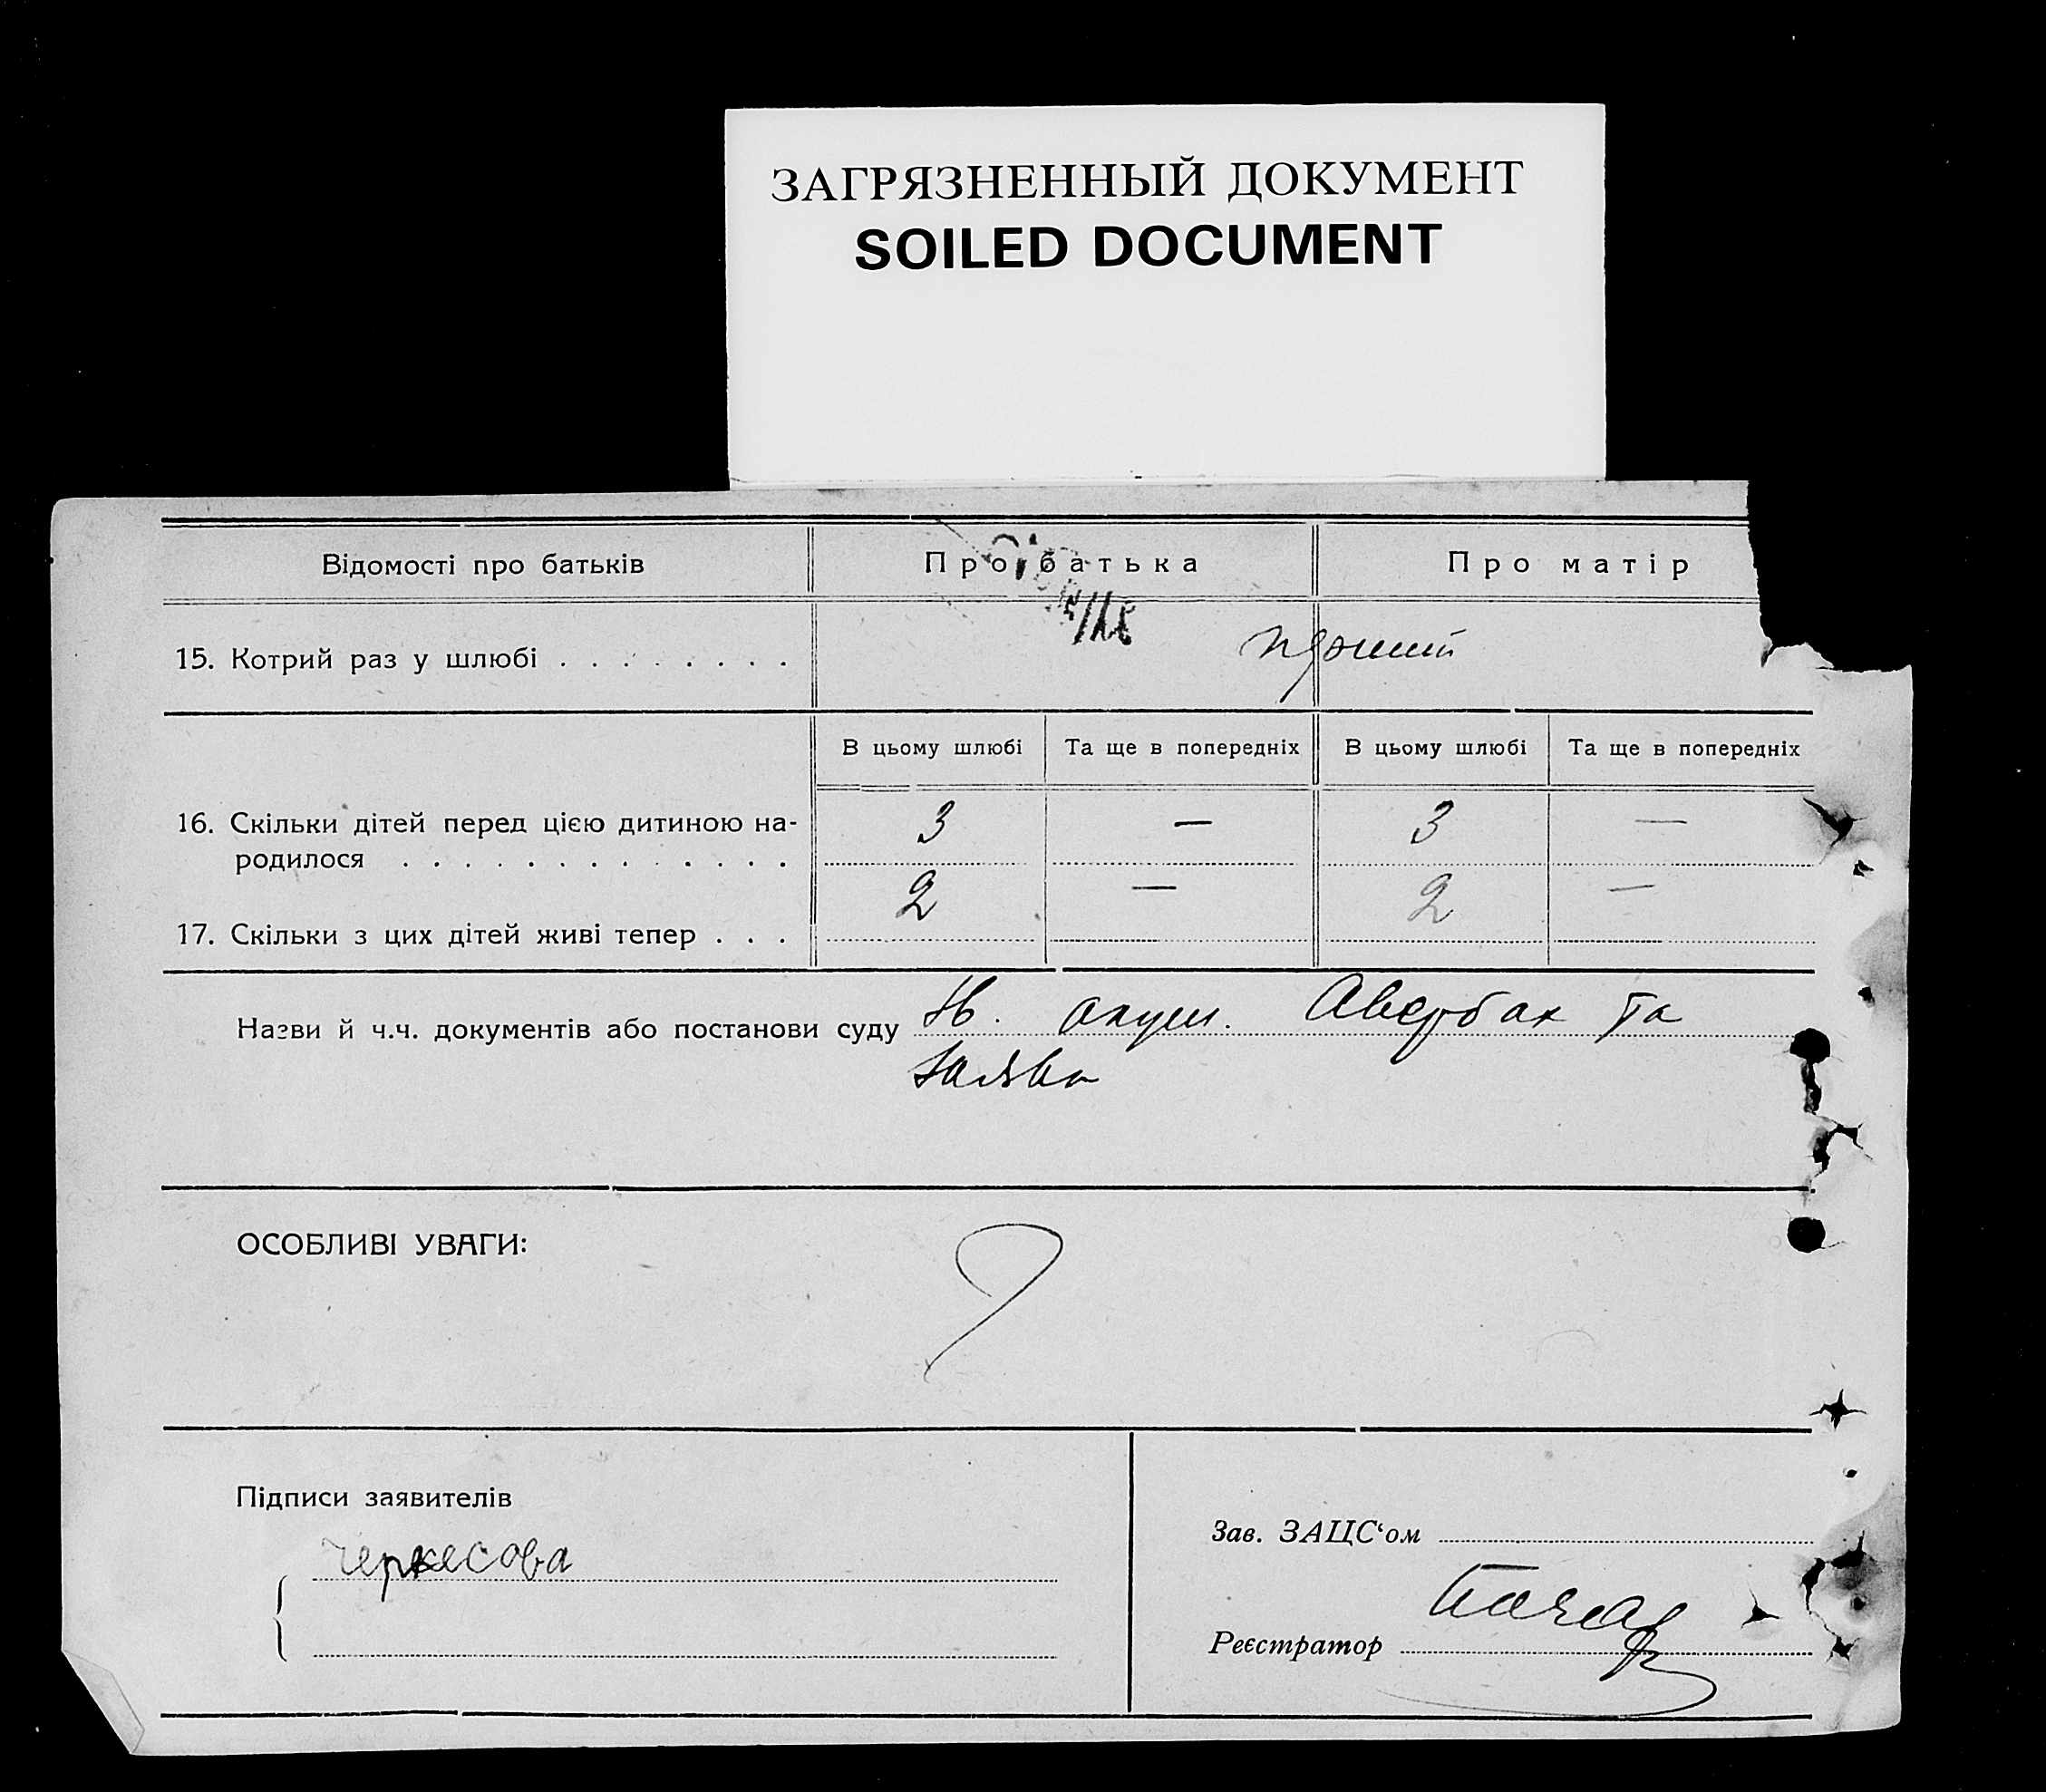 ЗАГРЯЗНЕННЫЙ ДОКУМЕНТ
SOILED DOCUMENT
Відомості про батьків Про батька Про матір
15. Котрий раз у шлюбі . . . . . . . . перший
В цьому шлюбі Та ще в попередніх В цьому шлюбі Та ще в попередніх
16. Скільки дітей перед цією дитиною на- 3 — 3 —
родилося . . . . . . . . . . . . .
17. Скільки з цих дітей живі тепер . . . 2 — 2 —
Назви й ч.ч. документів або постанови суду акуш. Авербах та
заява
ОСОБЛИВІ УВАГИ:
Підписи заявителів
Черкесова
Зав. ЗАЦС‘ом
Реєстратор